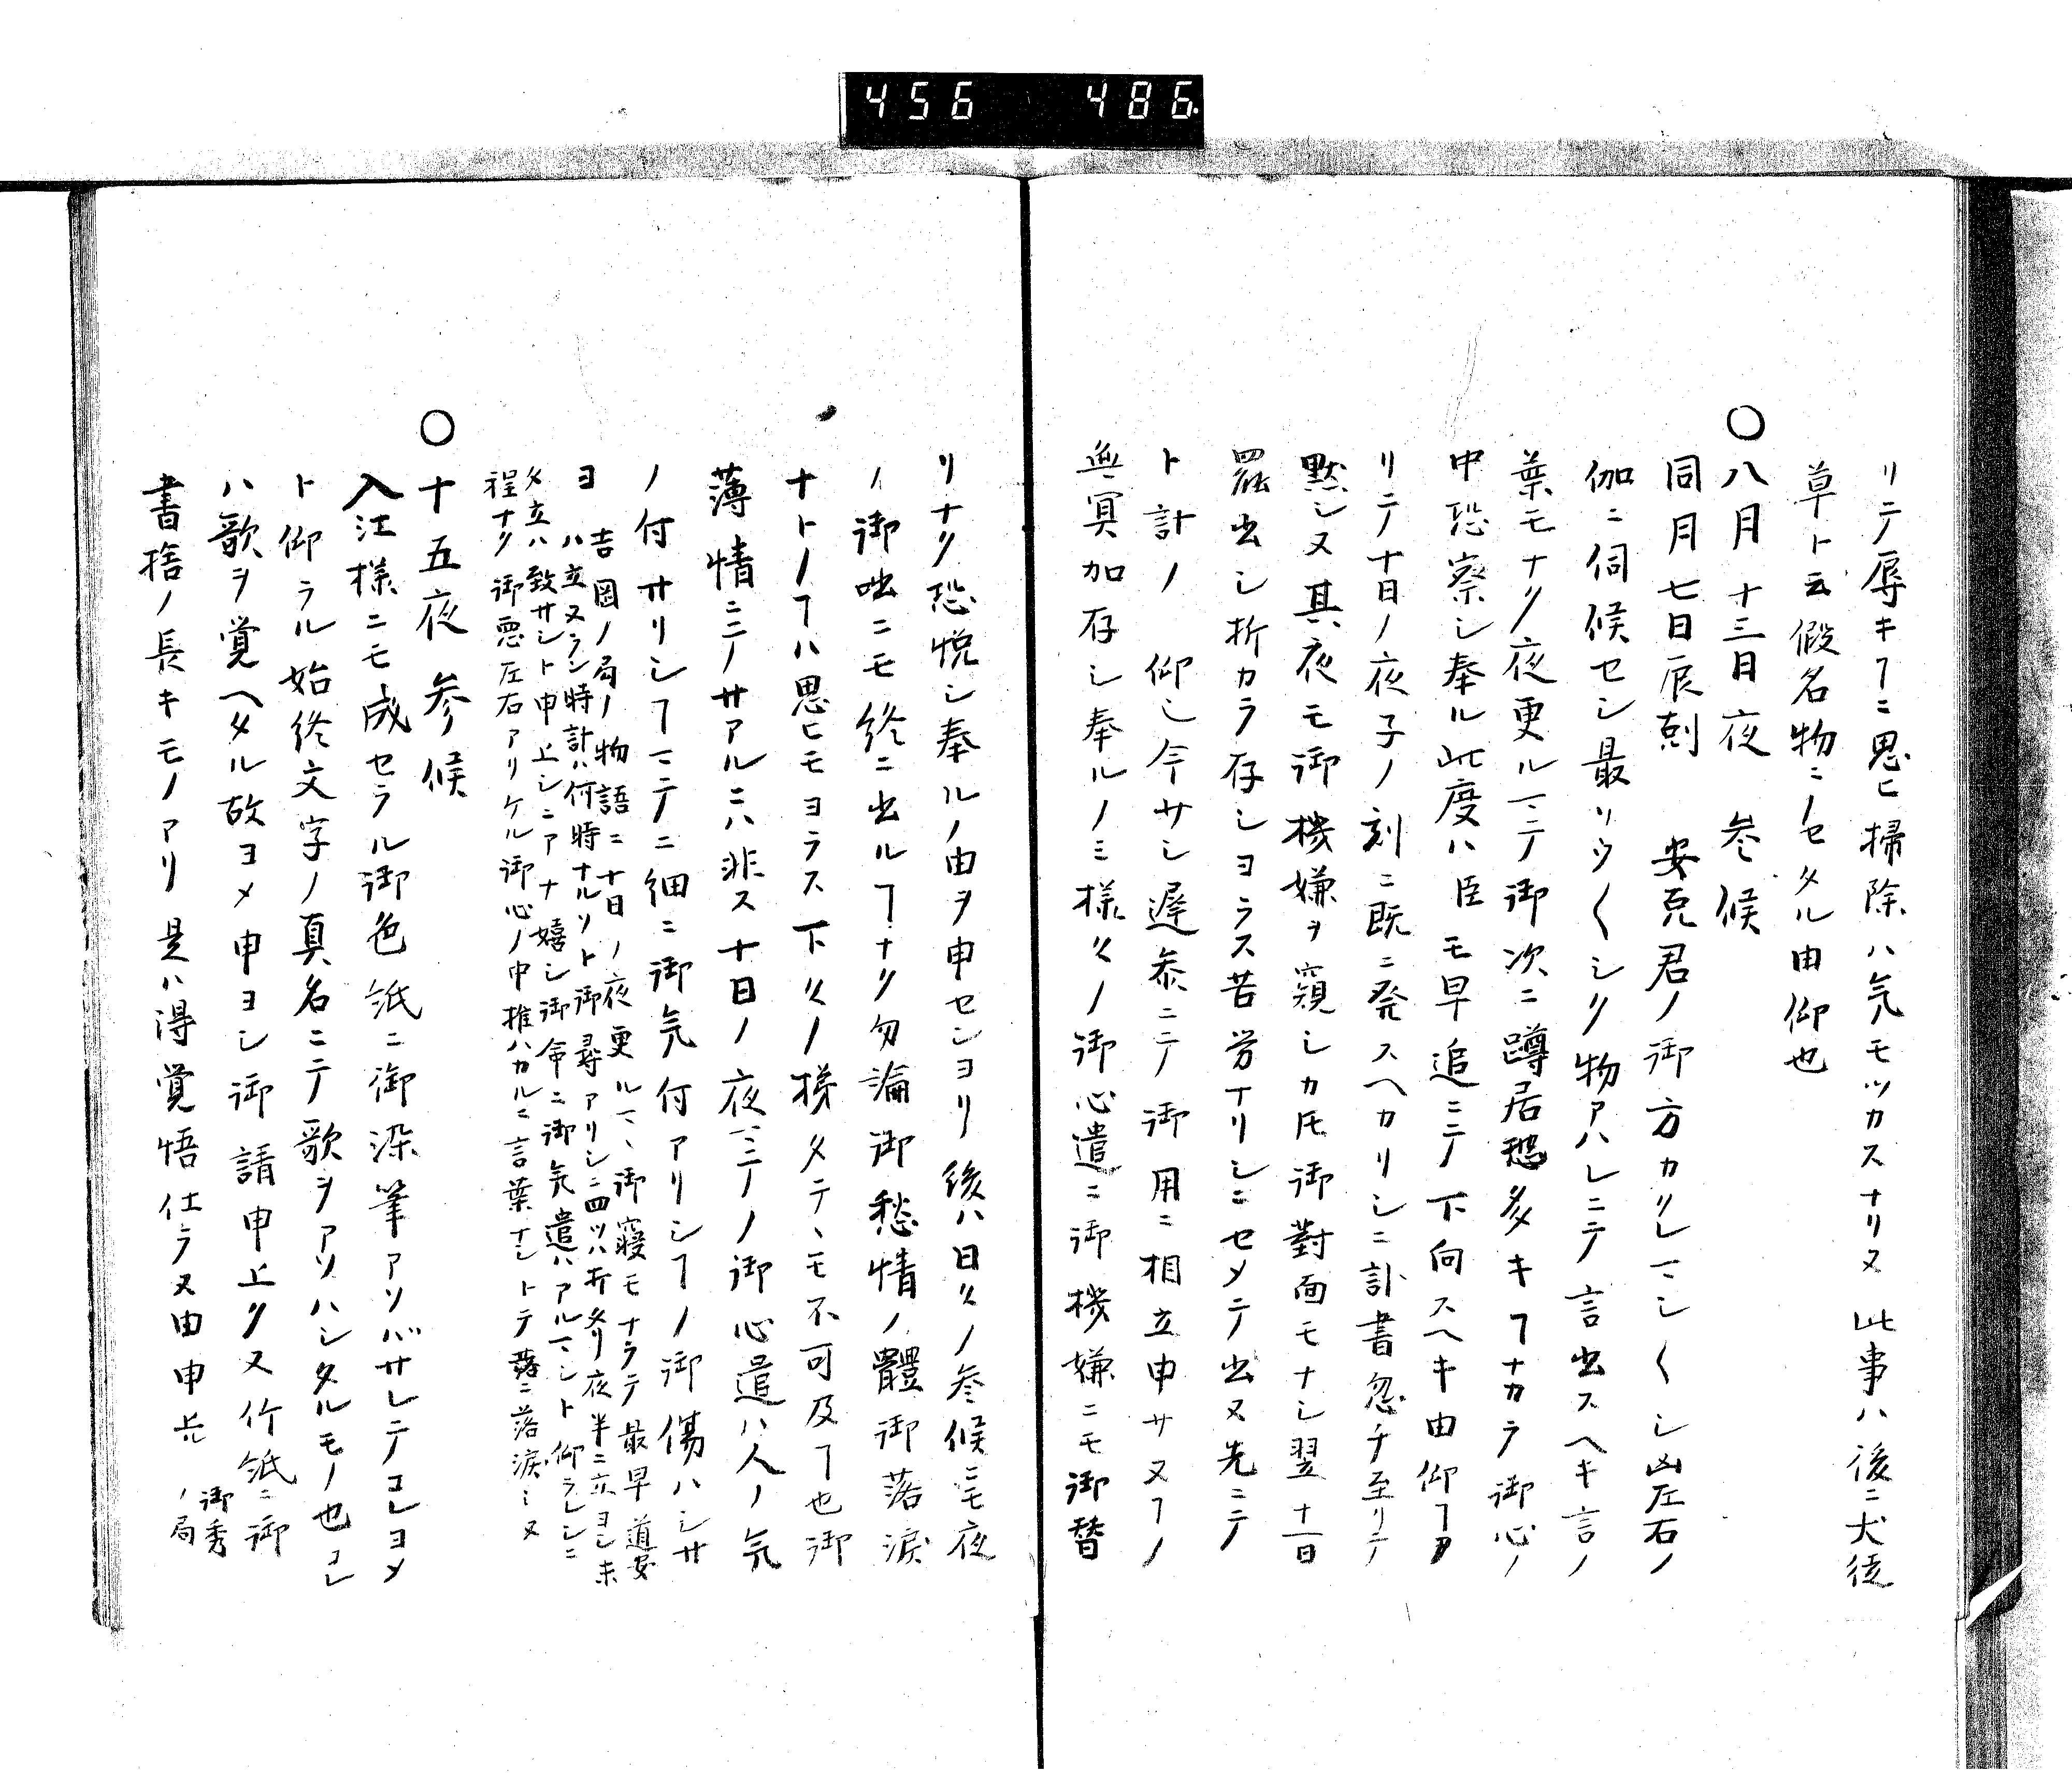 456 486
リテ辱キヿニ思ヒ掃除ハ気モツカスナリヌ此事ハ後ニ犬徒
草ト云假名物ニノセタル由仰也
○八月十三日夜 参候
同月七日辰刻 安克君ノ御方カクレマシ〱シ凶左右ノ
伽ニ伺候セシ最ツツ〱シク物アハレニテ言出スヘキ言ノ
葉モナク夜更ルマテ御次ニ蹲居愁多キヿナカラ御心ノ
中恐察シ奉ル此度ハ臣モ早追ニテ下向スヘキ由仰ヿア
リテ十日ノ夜子ノ刻ニ既ニ発スヘカリシニ訃書忽チ至リテ
黙シヌ其夜モ御機嫌ヲ窺シカ𪜈御對面モナシ翌十一日
罷出シ折カラ存シヨラス苦労ナリシニセメテ出ヌ先ニテ
ト計ノ 仰シ今サシ遅参ニテ御用ニ相立申サヌヿノ
無冥加存シ奉ルノミ様々ノ御心遣ニ御機嫌ニモ御替
リナク恐悦シ奉ルノ由ヲ申セシヨリ後ハ日々ノ参候ニモ夜
ノ御咄ニモ終ニ出ルヿナク勿論御愁情ノ體御落涙
ナトノヿハ思ヒモヨラス下々ノ様タテヽモ不可及ヿ也御
薄情ニテノサアルニハ非ス十日ノ夜マテノ御心遣ハ人ノ気
ノ付サリシヿマテニ細ニ御気付アリシヿノ御傷ハシサ
ヨ 吉岡ノ局ノ物語ニ十日ノ夜更ルマヽ御寝モナラテ最早道安
ハ立ヌラン時計ハ何時ナルソト御尋アリシニ四ツハ打タリ夜半ニ立ヨシ未
タ立ハ致サシト申上シニアナ嬉シ御命ニ御気遣ハアルマシト仰ラレシニ
程ナク御悪左右アリケル御心ノ中推ハカルニ言葉ナシトテ落ニ落涙シヌ
○十五夜参候
入江様ニモ成セラル御色紙ニ御染筆アソバサレテコレヨメ
ト仰ラル始終文字ノ真名ニテ歌ヲアソハシタルモノ也コレ
ハ歌ヲ覚ヘタル故ヨメ申ヨシ御請申上クヌ竹紙ニ御
書捨ノ長キモノアリ是ハ得覚悟仕ラヌ由申上 御秀
ノ局